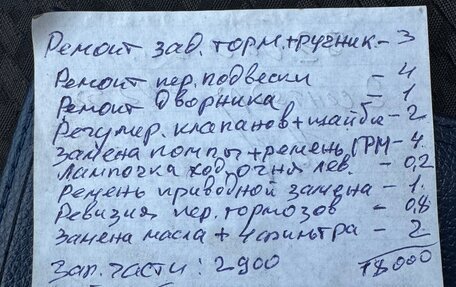 Ремонт зад. торм.+ручник – 3
Ремонт пер. подвески – 4
Ремонт дворника – 1
Регулир. клапанов+шайбы – 2
Замена помпы+ремень ГРМ – 4.
Лампочка ход. огня лев. – 0,2
Ремень приводной замена – 1.
Ревизия пер. тормозов – 0,8
Замена масла + 4 фильтра – 2
Зап. части: 2900 18000